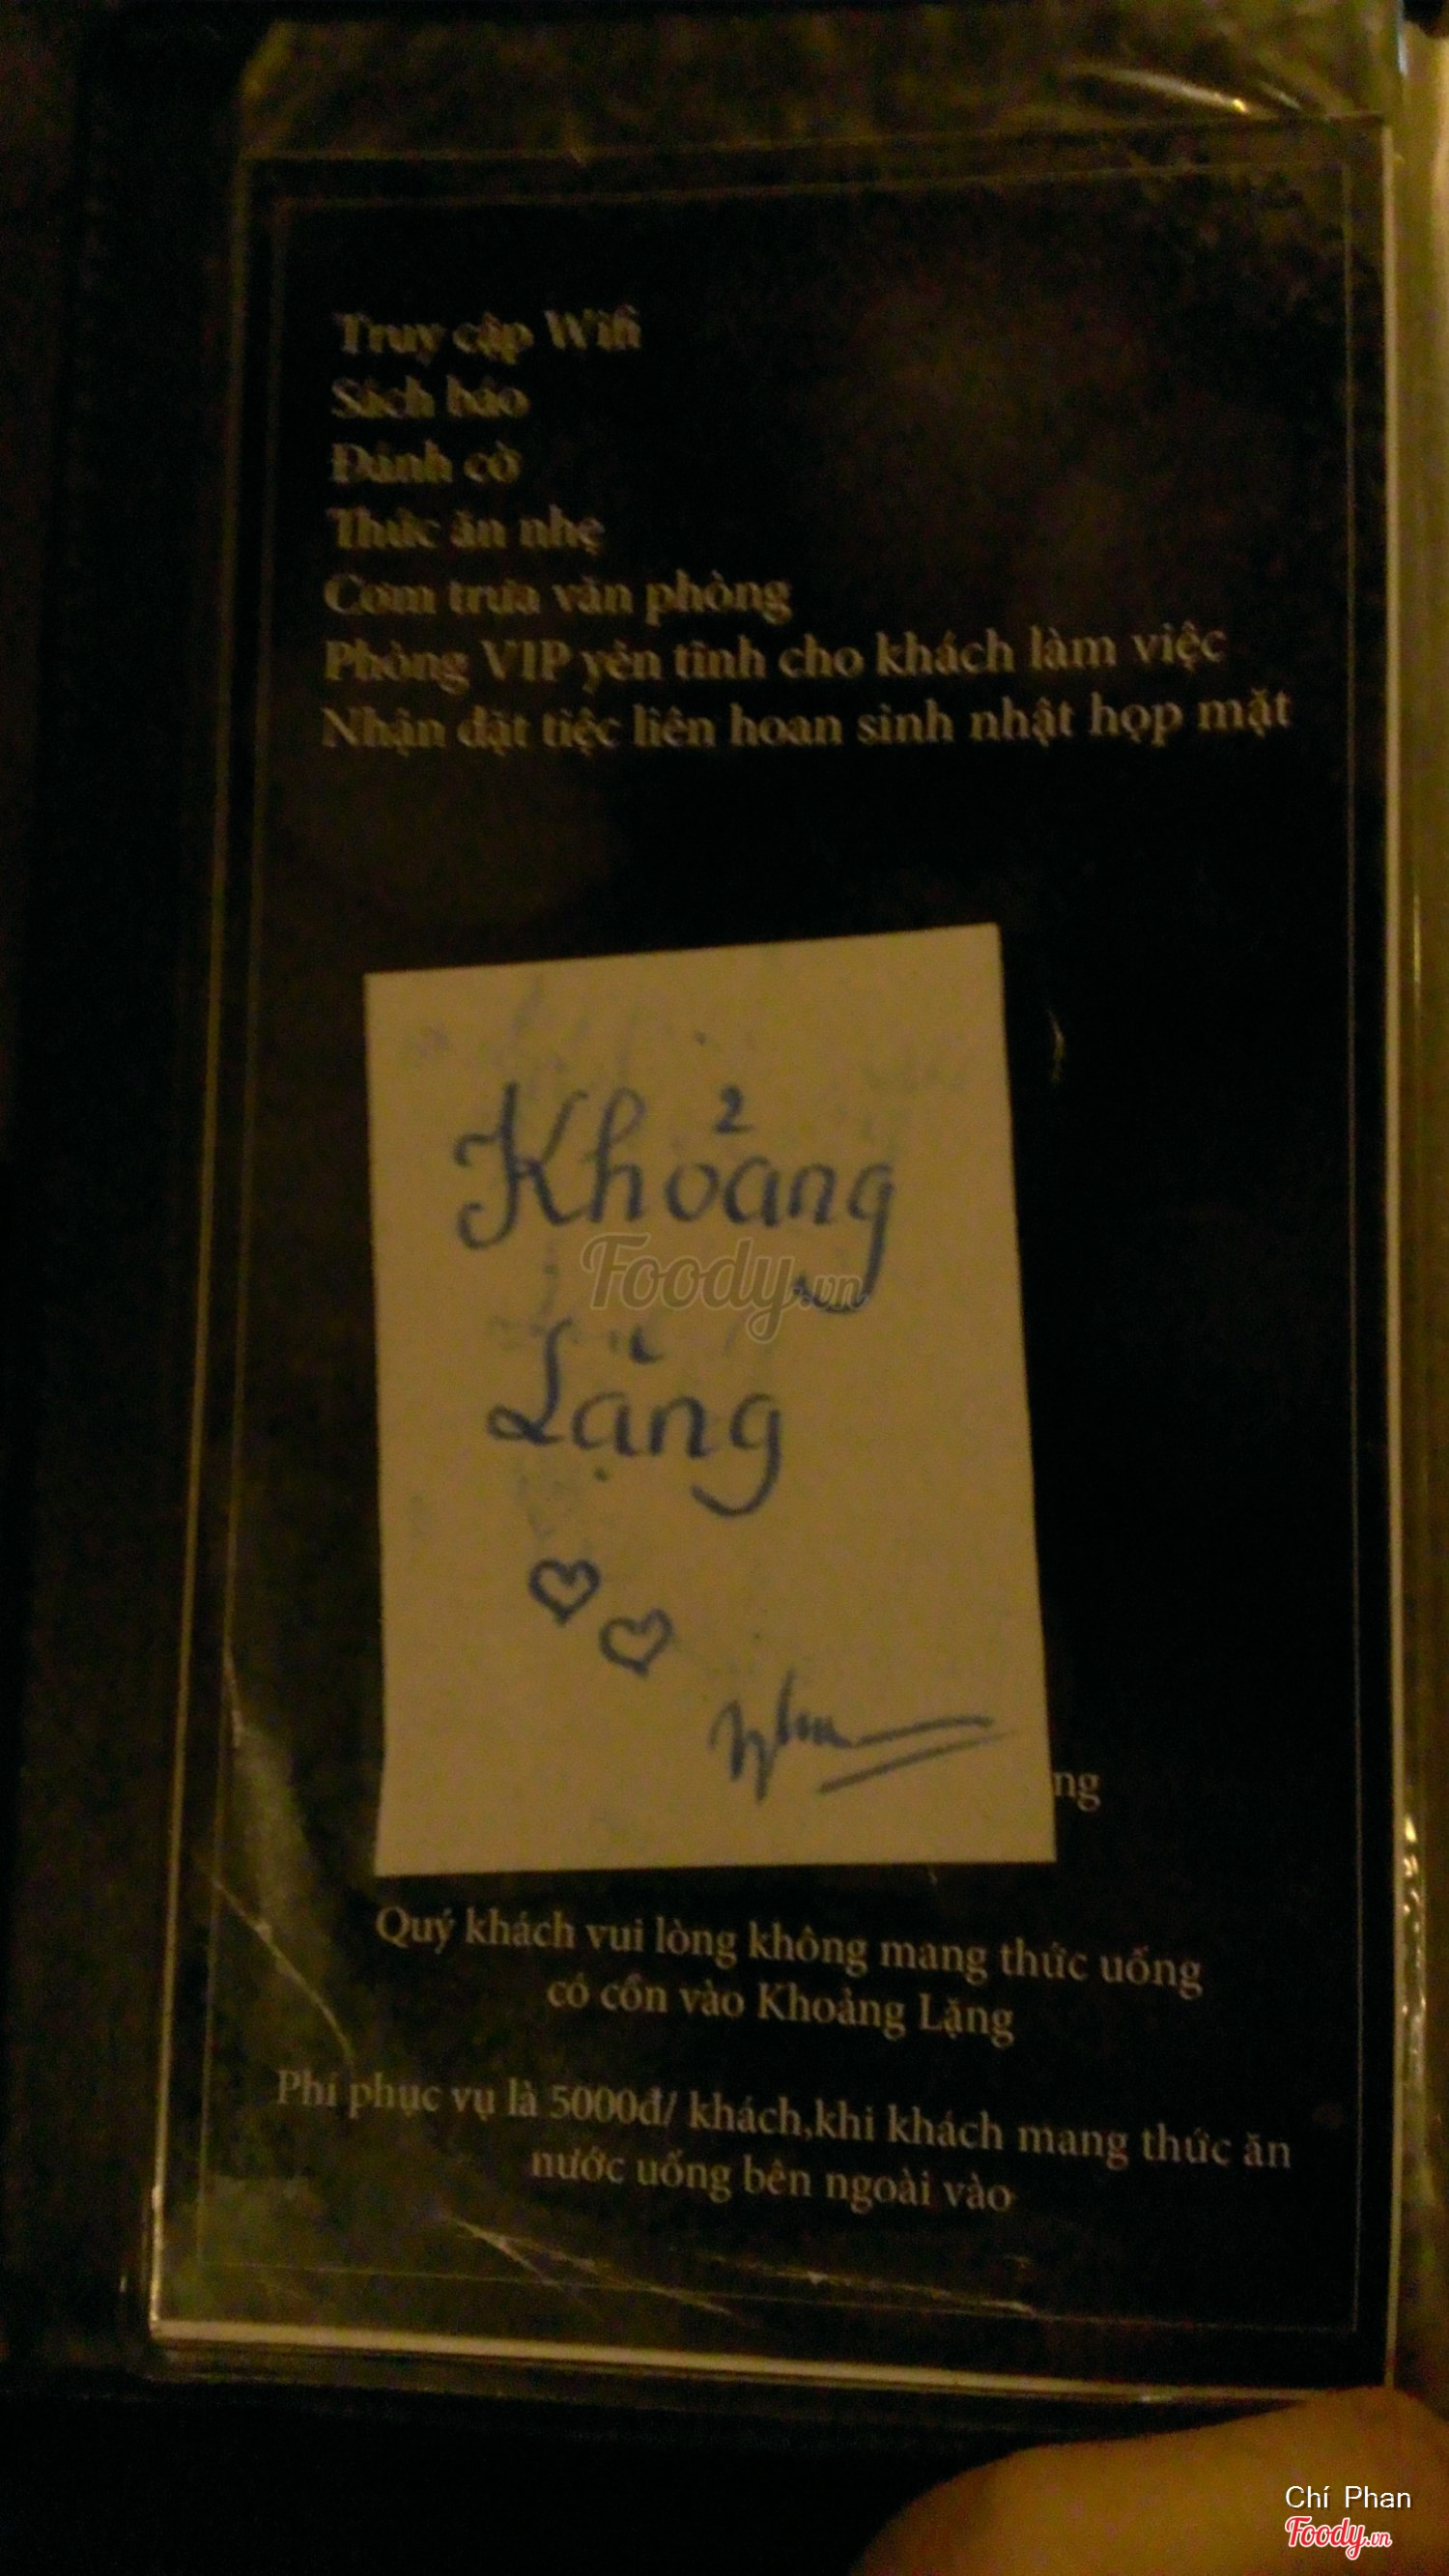 Truy cập Wifi
Sách báo
Đánh cờ
Thức ăn nhẹ
Cơm trưa văn phòng
Phòng VIP yên tĩnh cho khách làm việc
Nhận đặt tiệc liên hoan sinh nhật họp mặt
Khoảng
Foody.vn
Lặng
ng
Quý khách vui lòng không mang thức uống
có cồn vào Khoảng Lặng
Phí phục vụ là 5000đ/ khách,khi khách mang thức ăn
nước uống bên ngoài vào
Chí Phan
Foody.vn